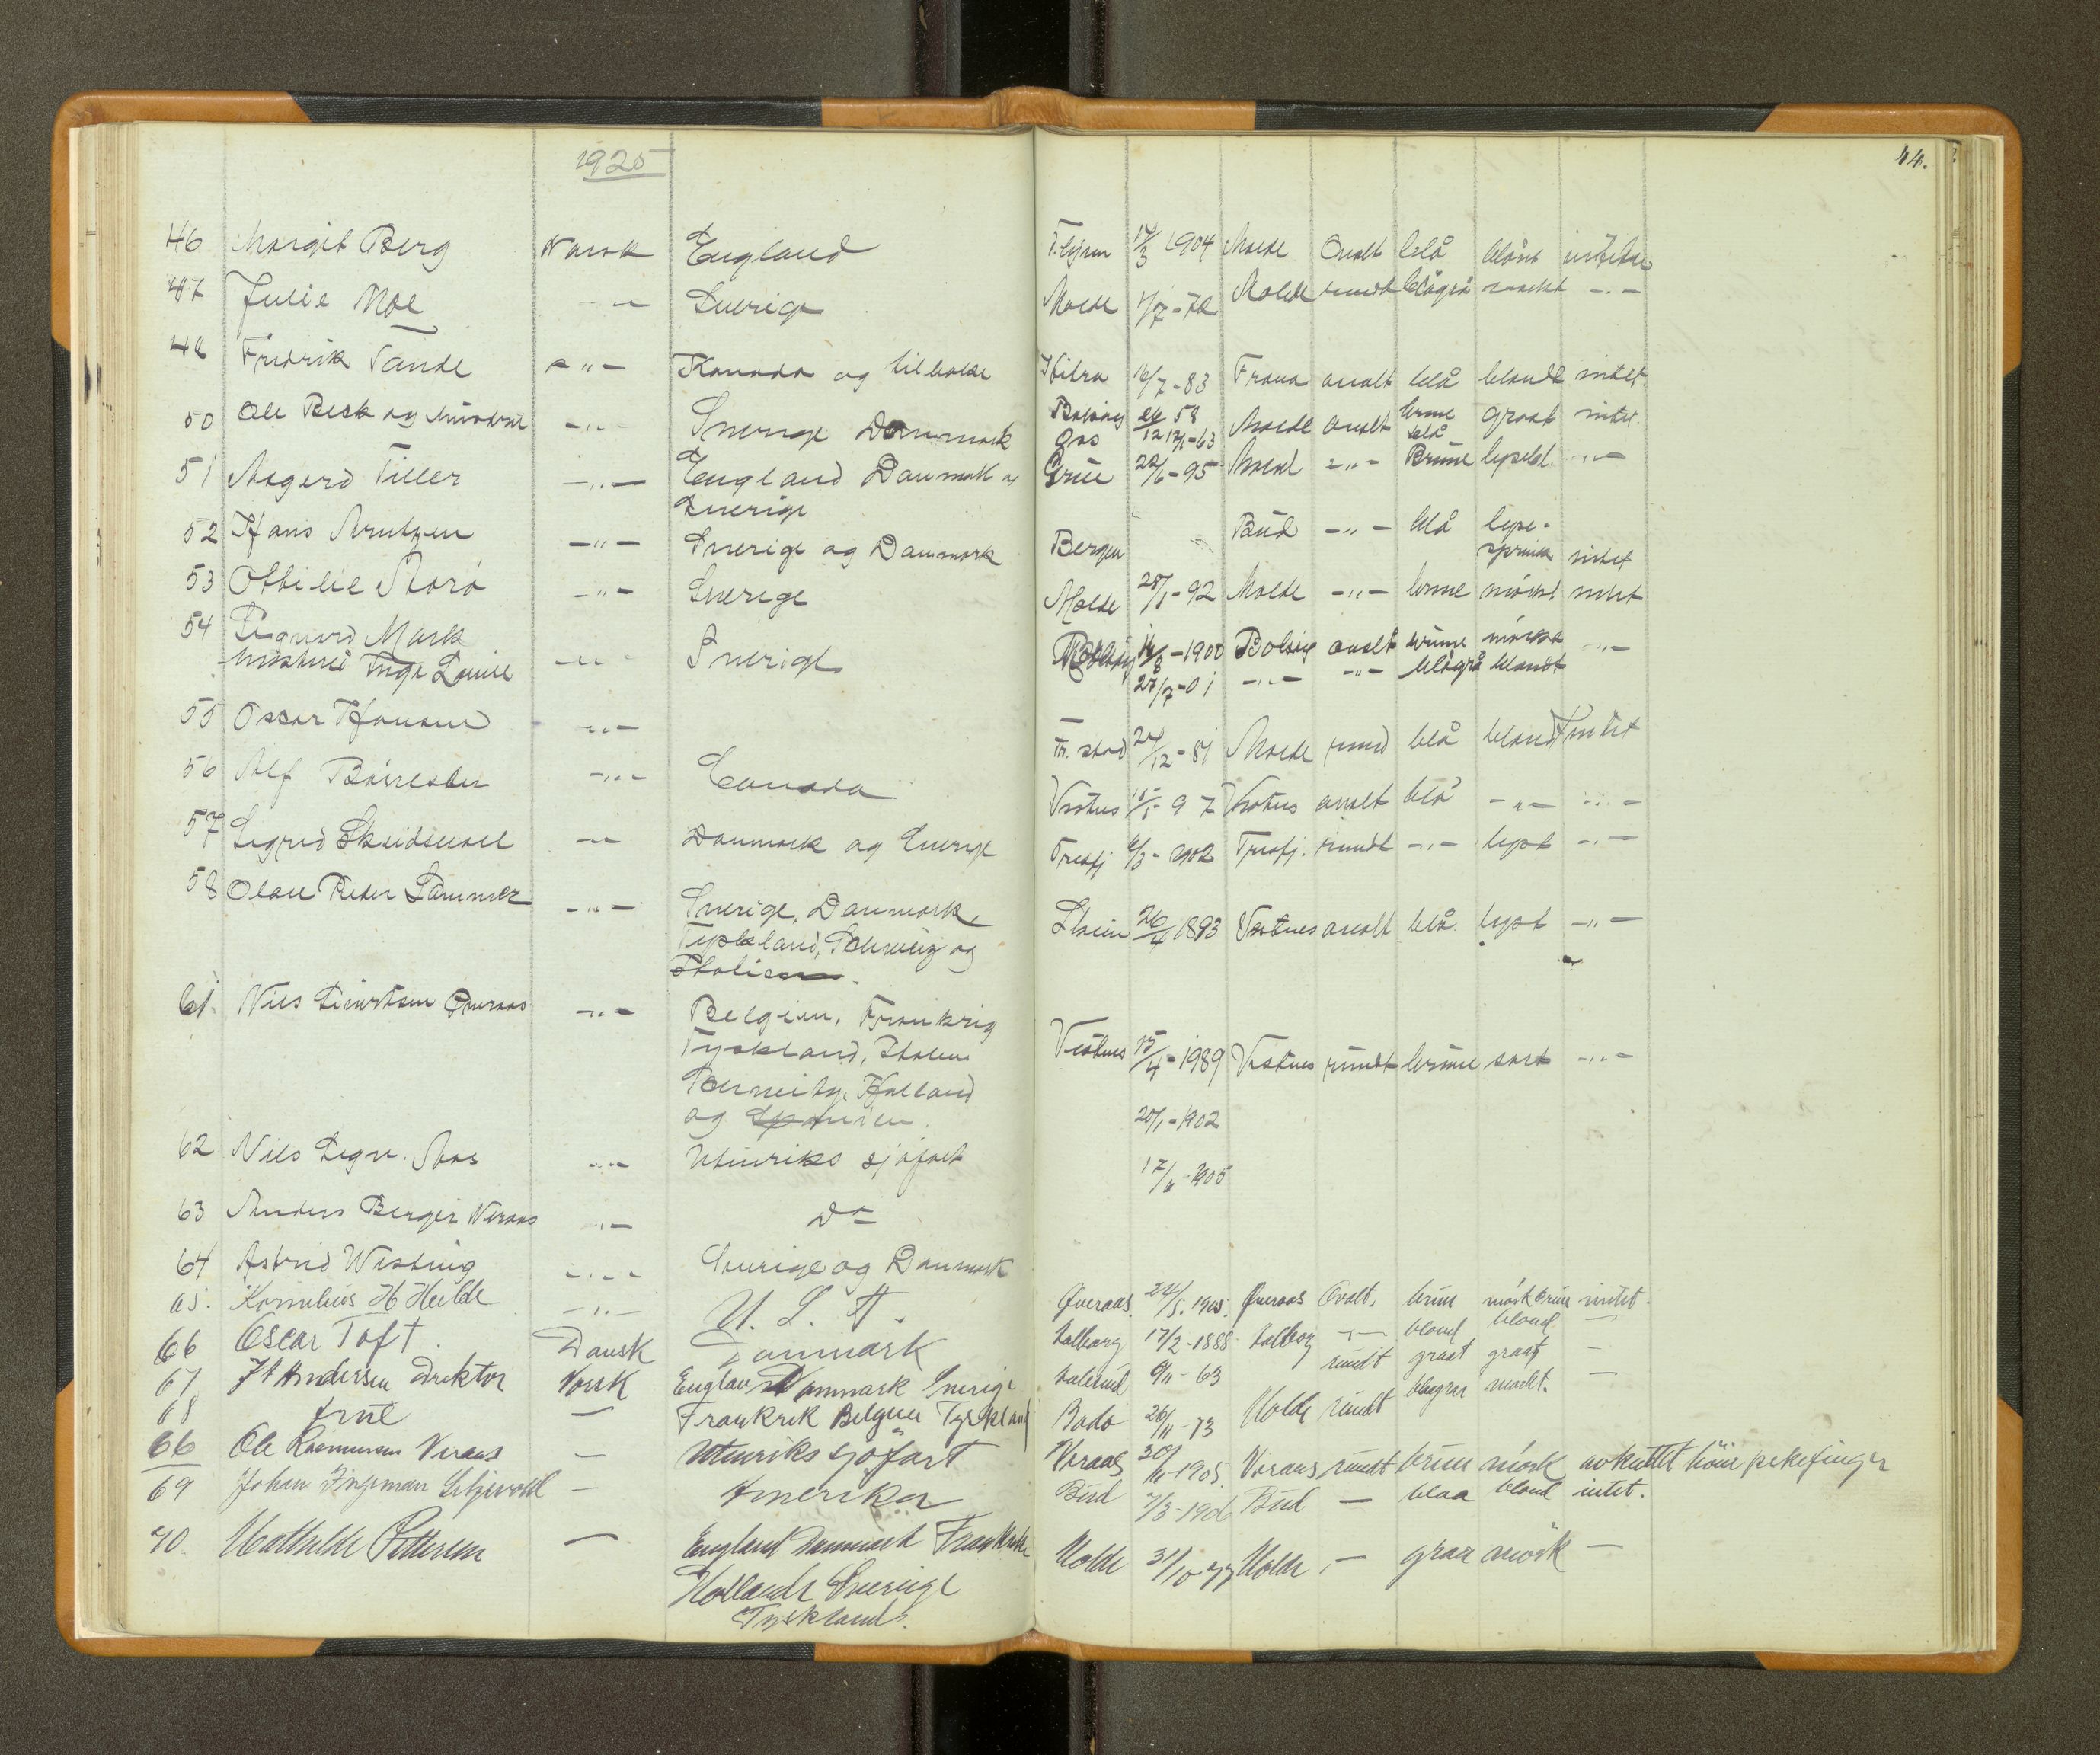 1925
44.
46 Margit Berg Norsk England 14/3 1904 Molde Ovalt blå blånt
47 Julie Moe - " - Sverige Molde 1/7 - 72 Molde rundt blågrå mørkt - " -
48 Fredrik Sande - " - Kanada og tilbake Hitra 16/7 - 83 Fræna ovalt blå blondt intet
50 Ole Beck og hustru - " - Sverige Danmark Bolsøy 58 Molde ovalt brune graat intet
12/1 - 63 blå
51 Aagerd Tiller - " - England Danmark og 22/6 - 95 Molde - " - Brune lysebl. - " -
Sverige
52 Hans Arntzen - " - Sverige og Danmark Bergen Bud - " - blå lyse-
intet
53 Othilie Morø - " - Sverige Molde 28/1 - 92 Molde - " - brune mørkt intet
54 Sigurd Mark Bolsøy 16/8 - 1900 Bolsøy ovalt brune mørkt - " -
hustru Inga Louise - " - Sverige 27/7 - 01 - " - - " - blågrå blondt
55 Oscar Hansen - " - Tr. stad 24/12 - 81 Molde rund blå blondt intet
56 Alf - " - Canada Vestnes 15/5 - 97 Vestnes ovalt blå - " - - " -
57 Sigrid Skeidsvoll - " - Danmark og Sverige Tresfj 4/3 - 1902 Tresfj. rundt - " - lyst - " -
58 Olav Peder Lammer - " - Sverige, Danmark, 26/4 1893 Vestnes ovalt blå lyst - " -
Tyskland, Schweiz og
Italien.
61. Nils Sivertsen Øveraas - " - Belgien, Frankrig
Tyskland, Italien Vestnes 15/4 - 1989 Vestnes rundt brune sort - " -
Schweitz, Holland
og Spanien. 20/1 - 1902
62 Nils Sigv. Aas - " - Utenriks sjøfart 17/6 - 1905
63 Anders Berger Veraas - " - Do
64 Astrid Wisting - " - Sverige og Danmark
65. Kornelius H Helde - " - U. S. A. Øveraas 24/5. 1905. Øveraas Ovalt. brun mørkbrun intet.
66 Oscar Toft. Dansk Danmark Aalborg 17/2 - 1888 Aalborg - " - blond blond -
67 Andersen Direktor Norsk England Danmark Sverige Aalesund 9/11 - 63 rundt graat graat -
68 frue - Frankrik Belgien Tyskland Bodø 26/11 - 73 Molde rundt blaagraa mørkt. -
66 Ole Rasmussen Veraas - Utenriks sjøfart Veraas 30/11 - 1905. Veraas rundt brun mørk avkuttet høire pekefinger
69 Johan Ingeman - Amerika Bud 7/3 - 1906 Bud - blaa blond intet.
70 Mathilde Pettersen - England Danmark Frankrike Molde 31/10 - 77 Molde - graa mørk -
Hollande Sverige
Tyskland.